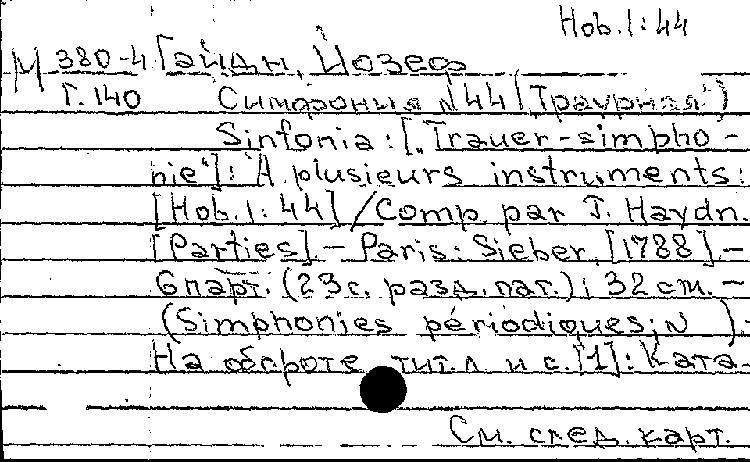 Hob. I: 44
М 380-4 Гайдн, Йозеф
Г. 140 Симфония N 44 („Траурная“)
Sinfonia: [„Trauer-simpho-
nie“]: A plusieurs instruments:
[Hob. I: 44] / Comp. par J. Haydn.
[Parties]. – Paris: Sieber, [1788]. –
6 парт. (23 с. разд. паг.); 32 cm. –
(Simphonies périodiques; N ). –
На обороте тит. л. и с. [1]: Ката-
См. след. карт.